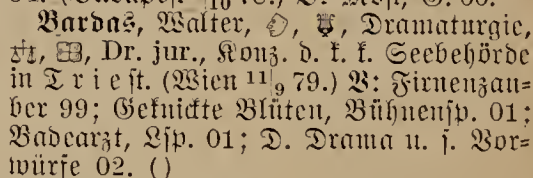 Bardas, Walter, Dramaturgie,
Dr. jur., Konz. d. k. k. Seebehörde
in Triest. (Wien 11/9 79.) V: Firnenzau-
ber 99; Geknickte Blüten, Bühnensp. 01;
Badearzt, Lsp. 01; D. Drama u. s. Vor-
würfe 02. ()